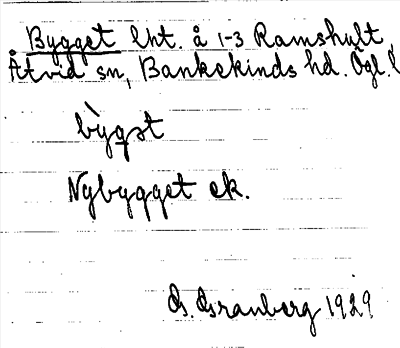 Bygget lht. å 1-3 Ramshult,
Åtvid sn, Bankekinds hd. Ögl. l
bỳgət
Nybygget ek.
G. Granberg 1929